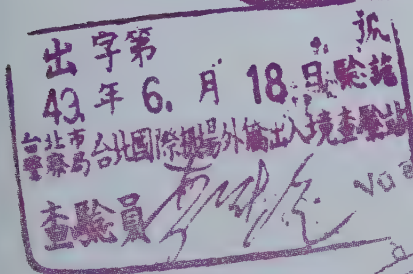 出字第 號
43.年 6.月 18.日驗訖
台北市警察局 台北國際機場外僑出入境查驗站
查驗員